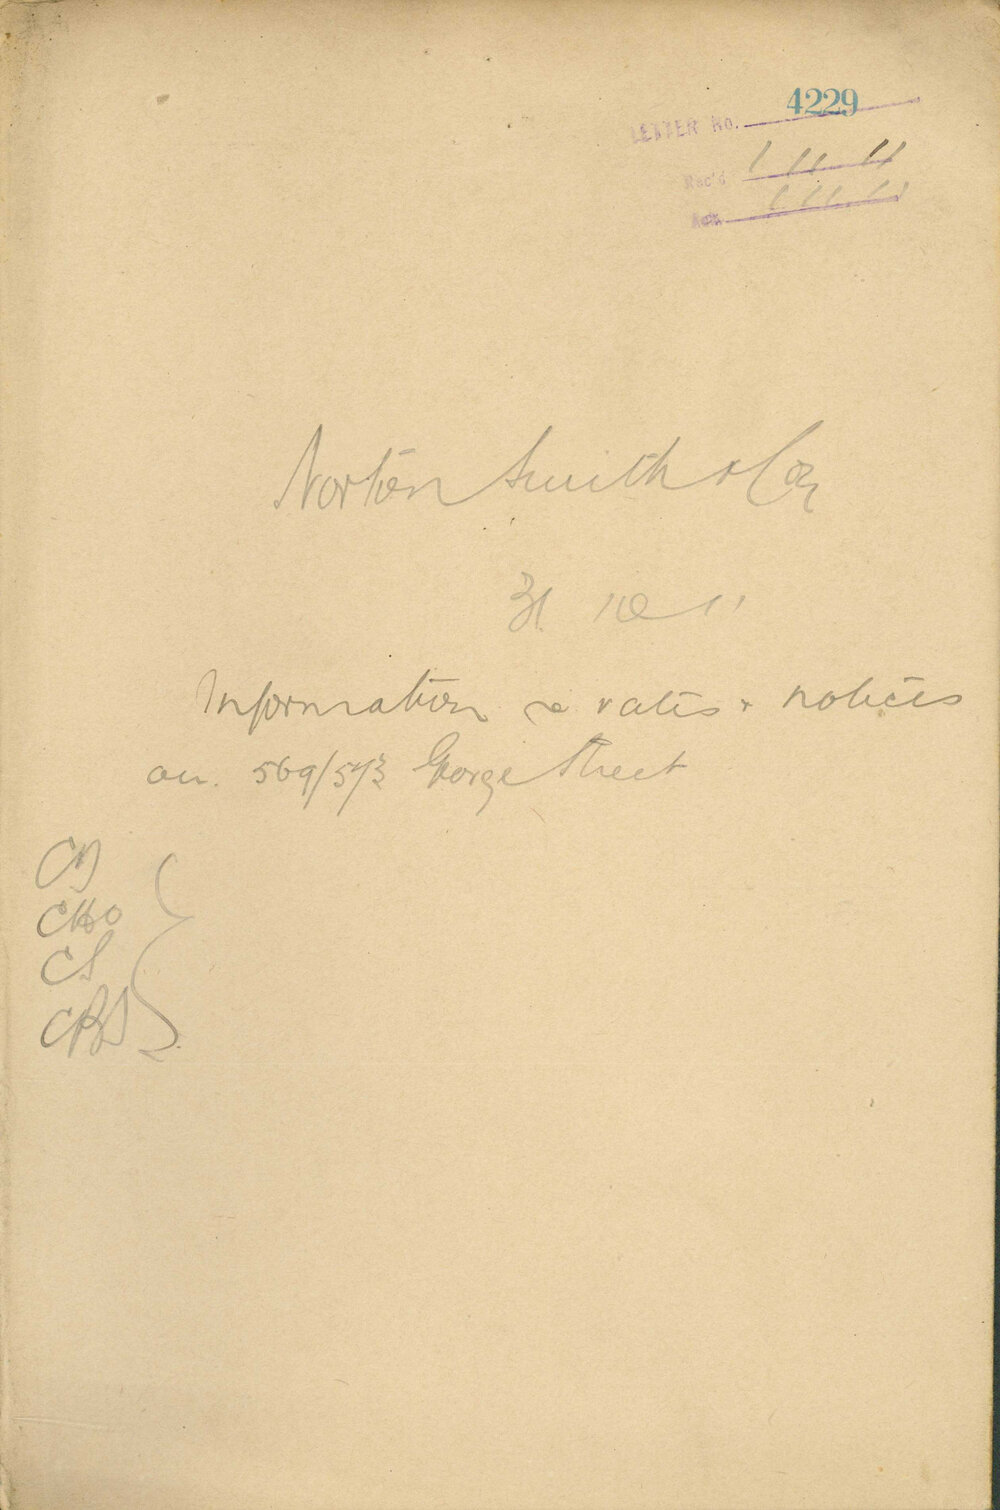 4229
LETTER No.
Rec'd 1 11 11
1 11 11
Norton Smith & Co
31 10 11
Information re rates & notices
on 569/573 George Street
CHO
CS